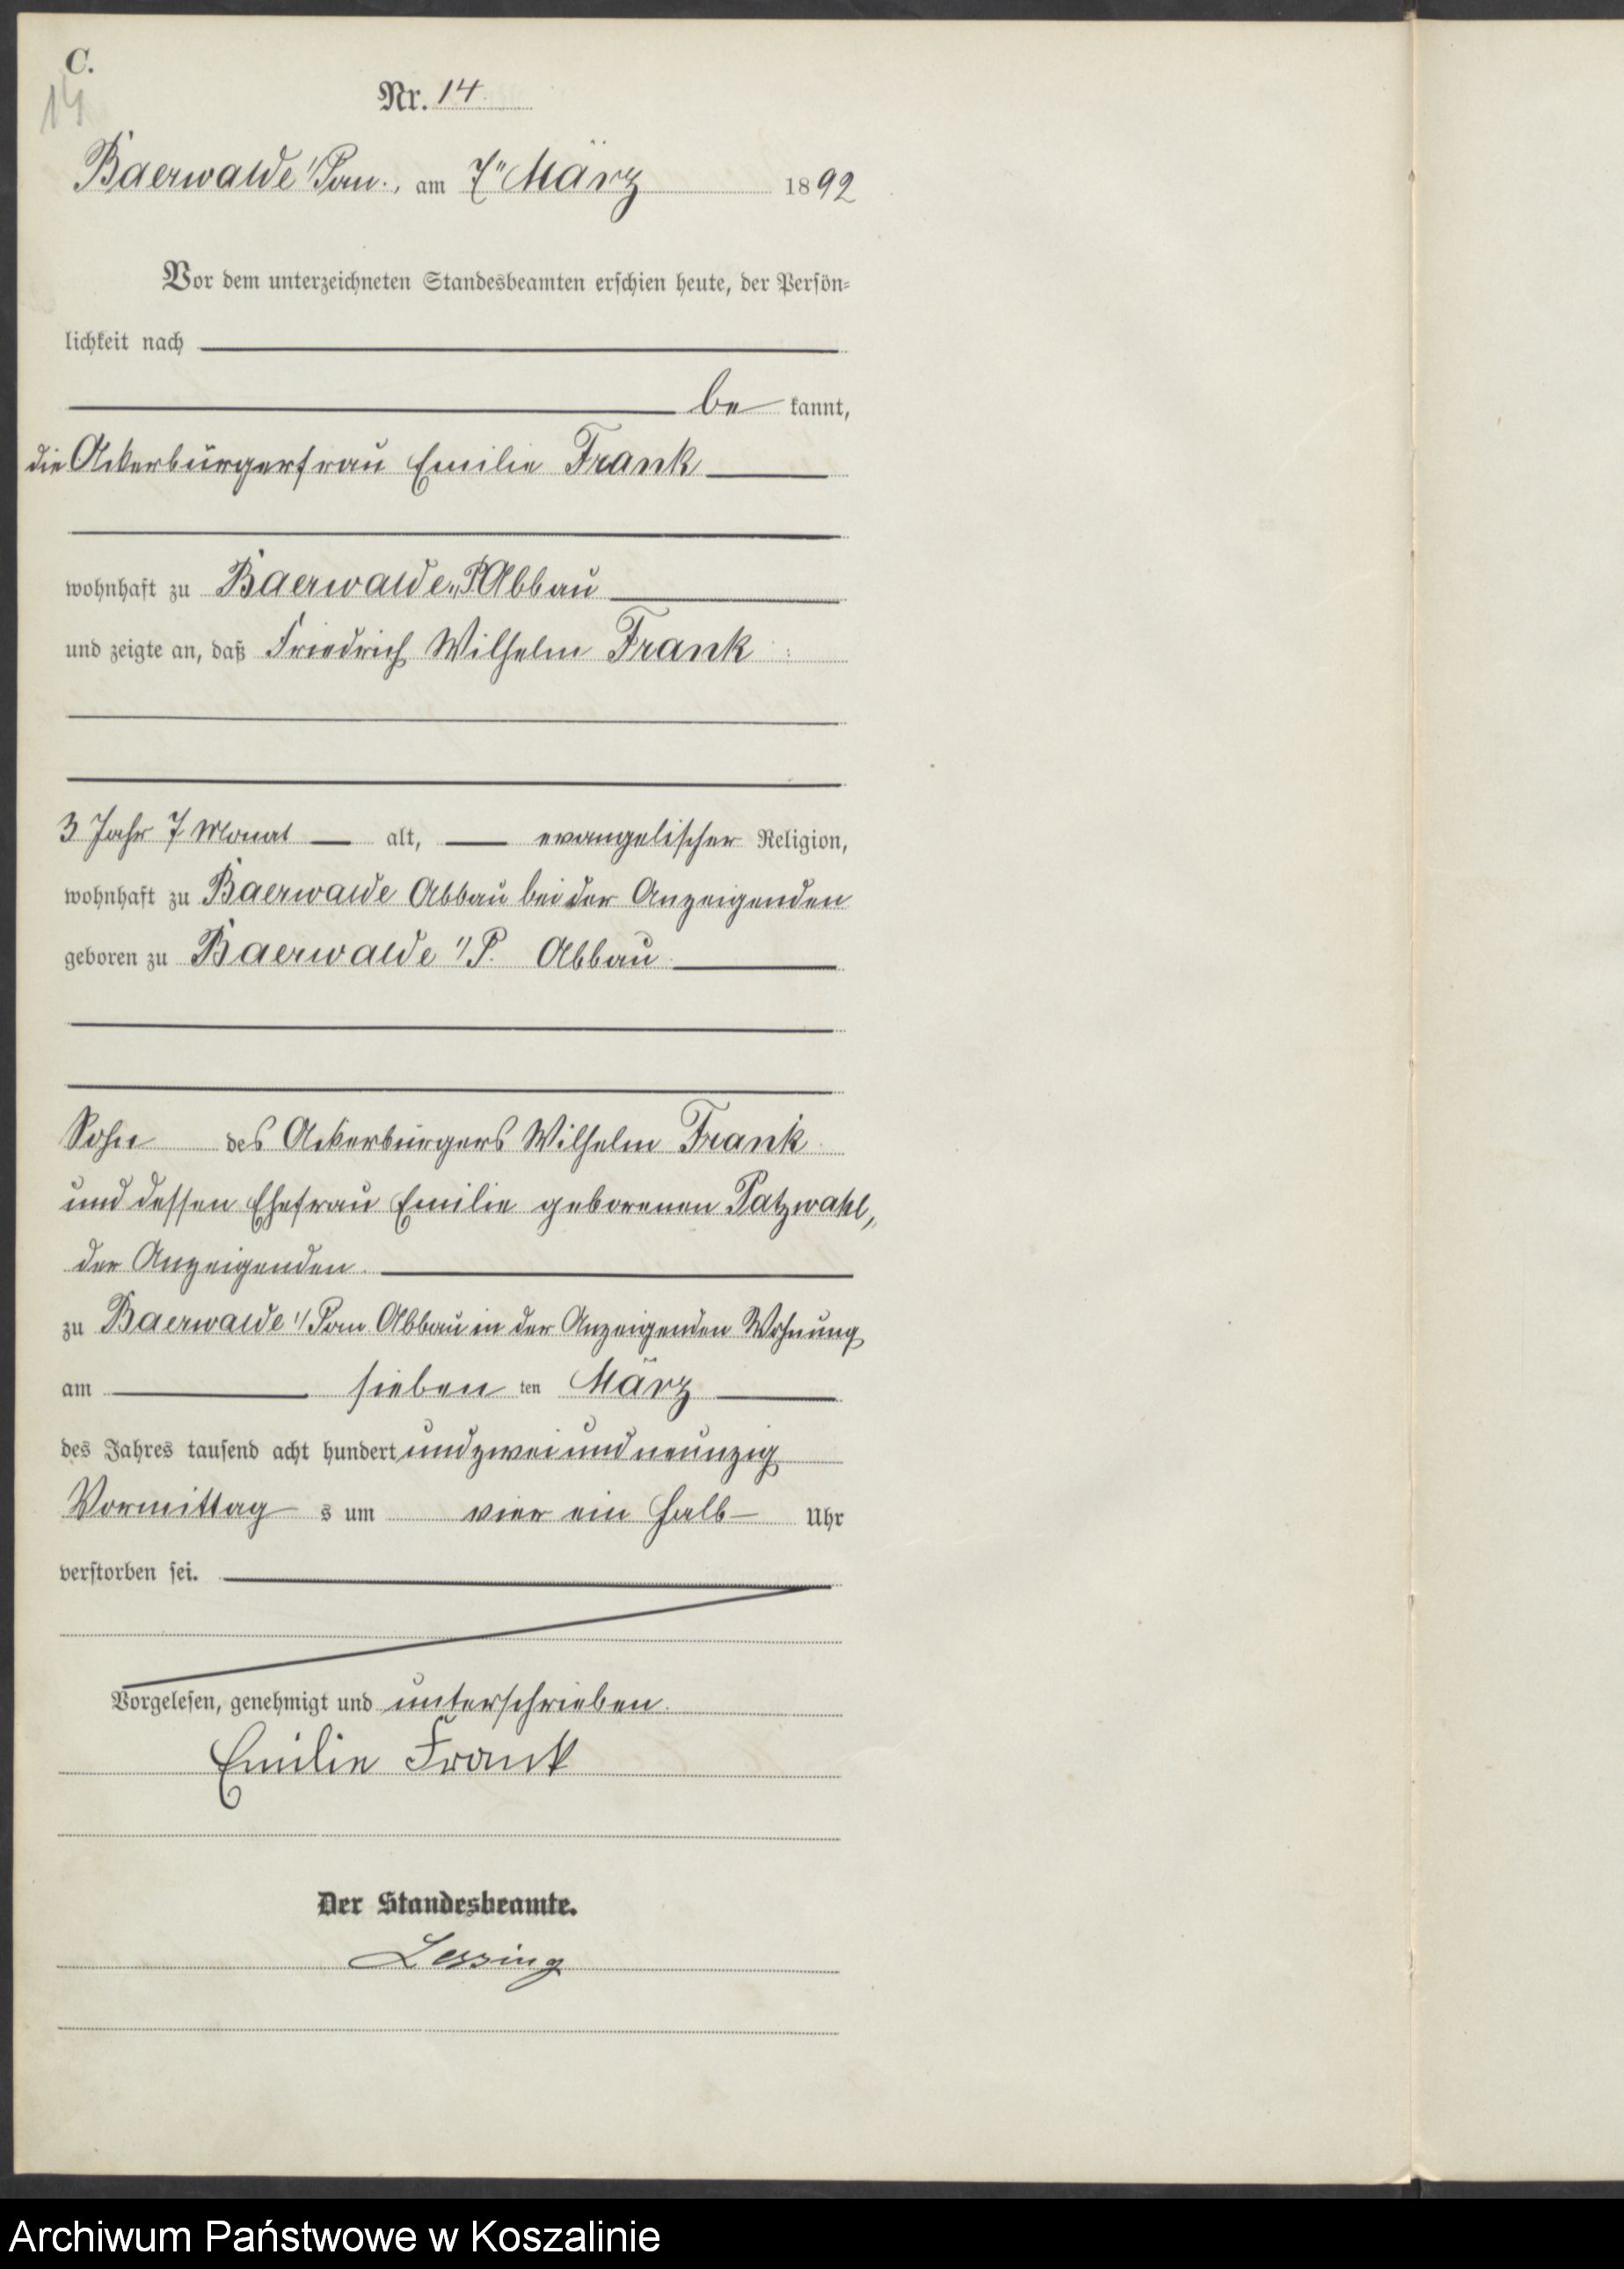 C.
14
Nr. 14
Baerwalde i/Pom., am 7ten März 1892
Vor dem unterzeichneten Standesbeamten erschien heute, der Persön-
lichkeit nach
be kannt,
die Ackerbürgerfrau Emilie Frank
wohnhaft zu Baerwalde i/P Abbau
und zeigte an, daß Friedrich Wilhelm Frank
3 Jahr 7 Monat alt, evangelischer Religion,
wohnhaft zu Baerwalde Abbau bei der Anzeigenden
geboren zu Baerwalde i/P. Abbau
Sohn des Ackerbürgers Wilhelm Frank
und dessen Ehefrau Emilie geborenen Patzwahl,
der Anzeigenden.
zu Baerwalde i/Pom Abbau in der Anzeigenden Wohnung
am sieben ten März
des Jahres tausend acht hundert und zwei und neunzig
Vormittag s um vier ein halb Uhr
verstorben sei.
Vorgelesen, genehmigt und unterschrieben.
Emilie Frank
Der Standesbeamte.
Lessing
Archiwum Państwowe w Koszalinie